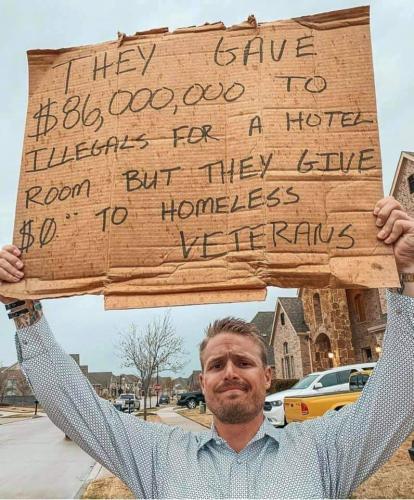 THEY GAVE
$86,000,000 TO
ILLEGALS FOR A HOTEL
ROOM BUT THEY GIVE
$0¨ TO HOMELESS
VETERANS